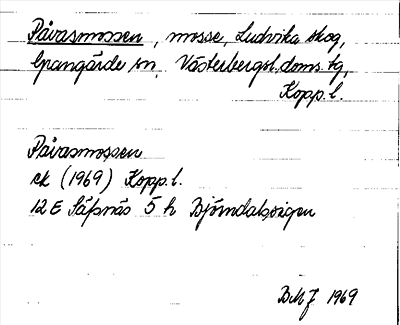 Påvasmossen, mosse, Ludvika skog,
Grangärde sn, Västerbergsl. doms. tg,
Kopp. l.
Påvasmossen
ek (1969) Kopp. l.
12 E Säfsnäs 5 h Björndalsvägen
BMJ 1969